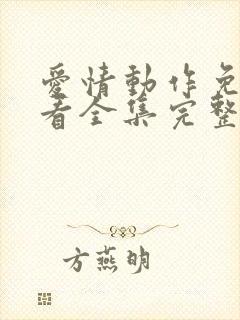 愛情動作免
看全集完整
方燕明